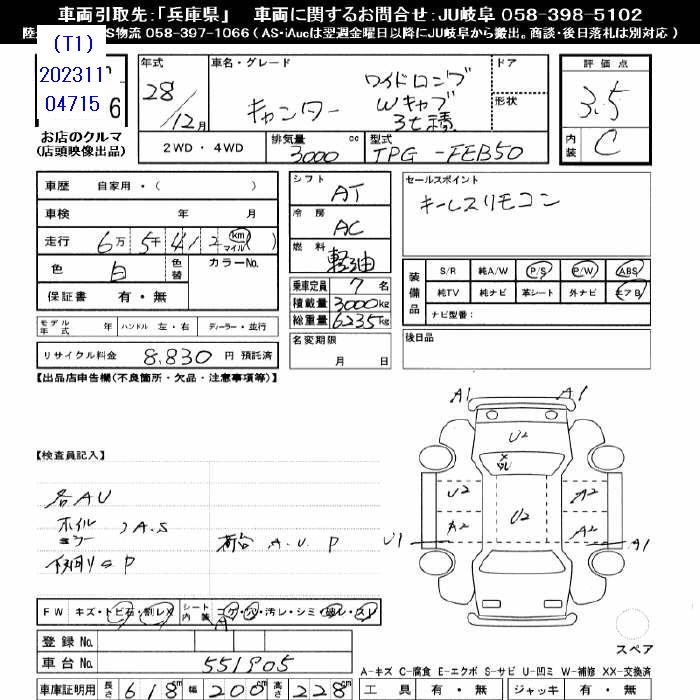 車両引取先:「兵庫県」 車両に関するお問合せ:JU岐阜 058-398-5102
S物流 058-397-1066 ( AS・iAucは翌週金曜日以降にJU岐阜から搬出。商談・後日落札は別対応 )
(T1)
202311
04715
6
お店のクルマ
(店頭映像出品)
年式 28/12月
車名・グレード キャンター ワイドロング Wキャブ 3t積
ドア
形状
評価点 3.5
内装 C
2WD・4WD
排気量 3000 cc
型式 TPG-FEB50
車歴 自家用・( )
車検 年 月
走行 6万5千412 km マイル ( )
色 白 色替 カラーNo.
保証書 有・無
モデル年式 年 ハンドル 左・右 ディーラー・並行
リサイクル料金 8,830 円 預託済
シフト AT
冷房 AC
燃料 軽油
乗車定員 7 名
積載量 3000 kg
総重量 6235 kg
名変期限 月 日
セールスポイント
キーレスリモコン
装備品 S/R 純A/W P/S P/W ABS
純TV 純ナビ 革シート 外ナビ エアB
ナビ型番:
後日品
【出品店申告欄(不良箇所・欠品・注意事項等)】
【検査員記入】
各AU
ホイル ミラー )A.S
荷台 A.U.P
下回りP
A1 A1
U2
U2 A2
U2
A2 A2
U1 A1
スペア
FW キズ・トビ石・割レX シート内装 コゲ・穴・汚レ・シミ・破レ・スレ
A
登録No.
車台No. 551905
車庫証明用 長さ 618 cm 幅 200 cm 高さ 228 cm
A-キズ C-腐食 E-エクボ S-サビ U-凹ミ W-補修 XX-交換済
工具 有・無 ジャッキ 有・無